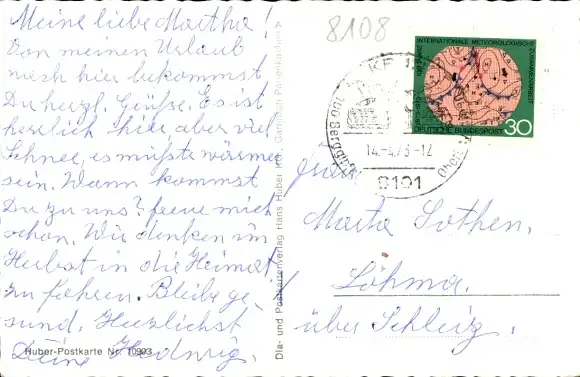 Meine liebe Martha!
Von meinem Urlaub
hier bekommst
Du herzl. Grüße. Es ist
herrlich hier aber viel
Schnee, es müßte wärmer
sein. Wann kommst
Du zu uns? freue mich
schon. Wir denken im
Herbst in die Heimat
zu fahren. Bleibe ge-
sund. Herzlichst
Deine Hedwig.
Huber-Postkarte Nr. 10993
Dia- und Postkartenverlag Hans Huber KG, Garmisch-Partenkirchen
8108
100 JAHRE INTERNATIONALE METEOROLOGISCHE ZUSAMMENARBEIT
1873-1973
DEUTSCHE BUNDESPOST 30
14.-4.73-12
8101
Frau
Marta Sothen.
Löhma.
über Schleiz.